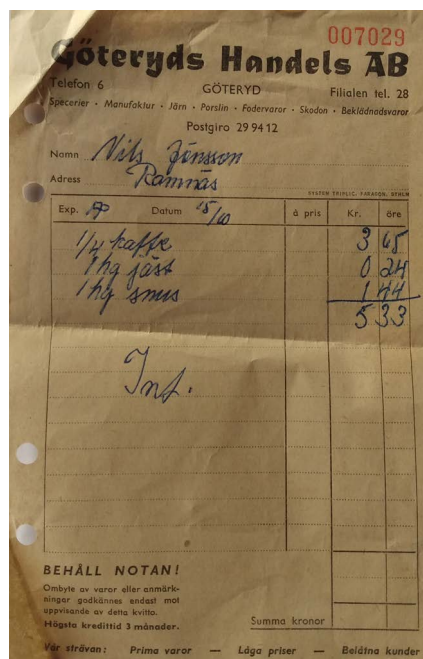 007029
Göteryds Handels AB
Telefon 6 GÖTERYD Filialen tel. 28
Specerier · Manufaktur · Järn · Porslin · Fodervaror · Skodon · Beklädnadsvaror
Postgiro 29 94 12
Namn Nils Jönsson
Adress Ramnäs
SYSTEM TRIPLIC. PARAGON, STHLM
Exp. Datum 15/10 à pris Kr. öre
1/4 kaffe 3 65
1 hg jäst 0 24
1 hg snus 1 44
5 33
Int.
BEHÅLL NOTAN!
Ombyte av varor eller anmärk-
ningar godkännes endast mot
uppvisande av detta kvitto.
Högsta kredittid 3 månader.
Summa kronor
Vår strävan: Prima varor — Låga priser — Belåtna kunder